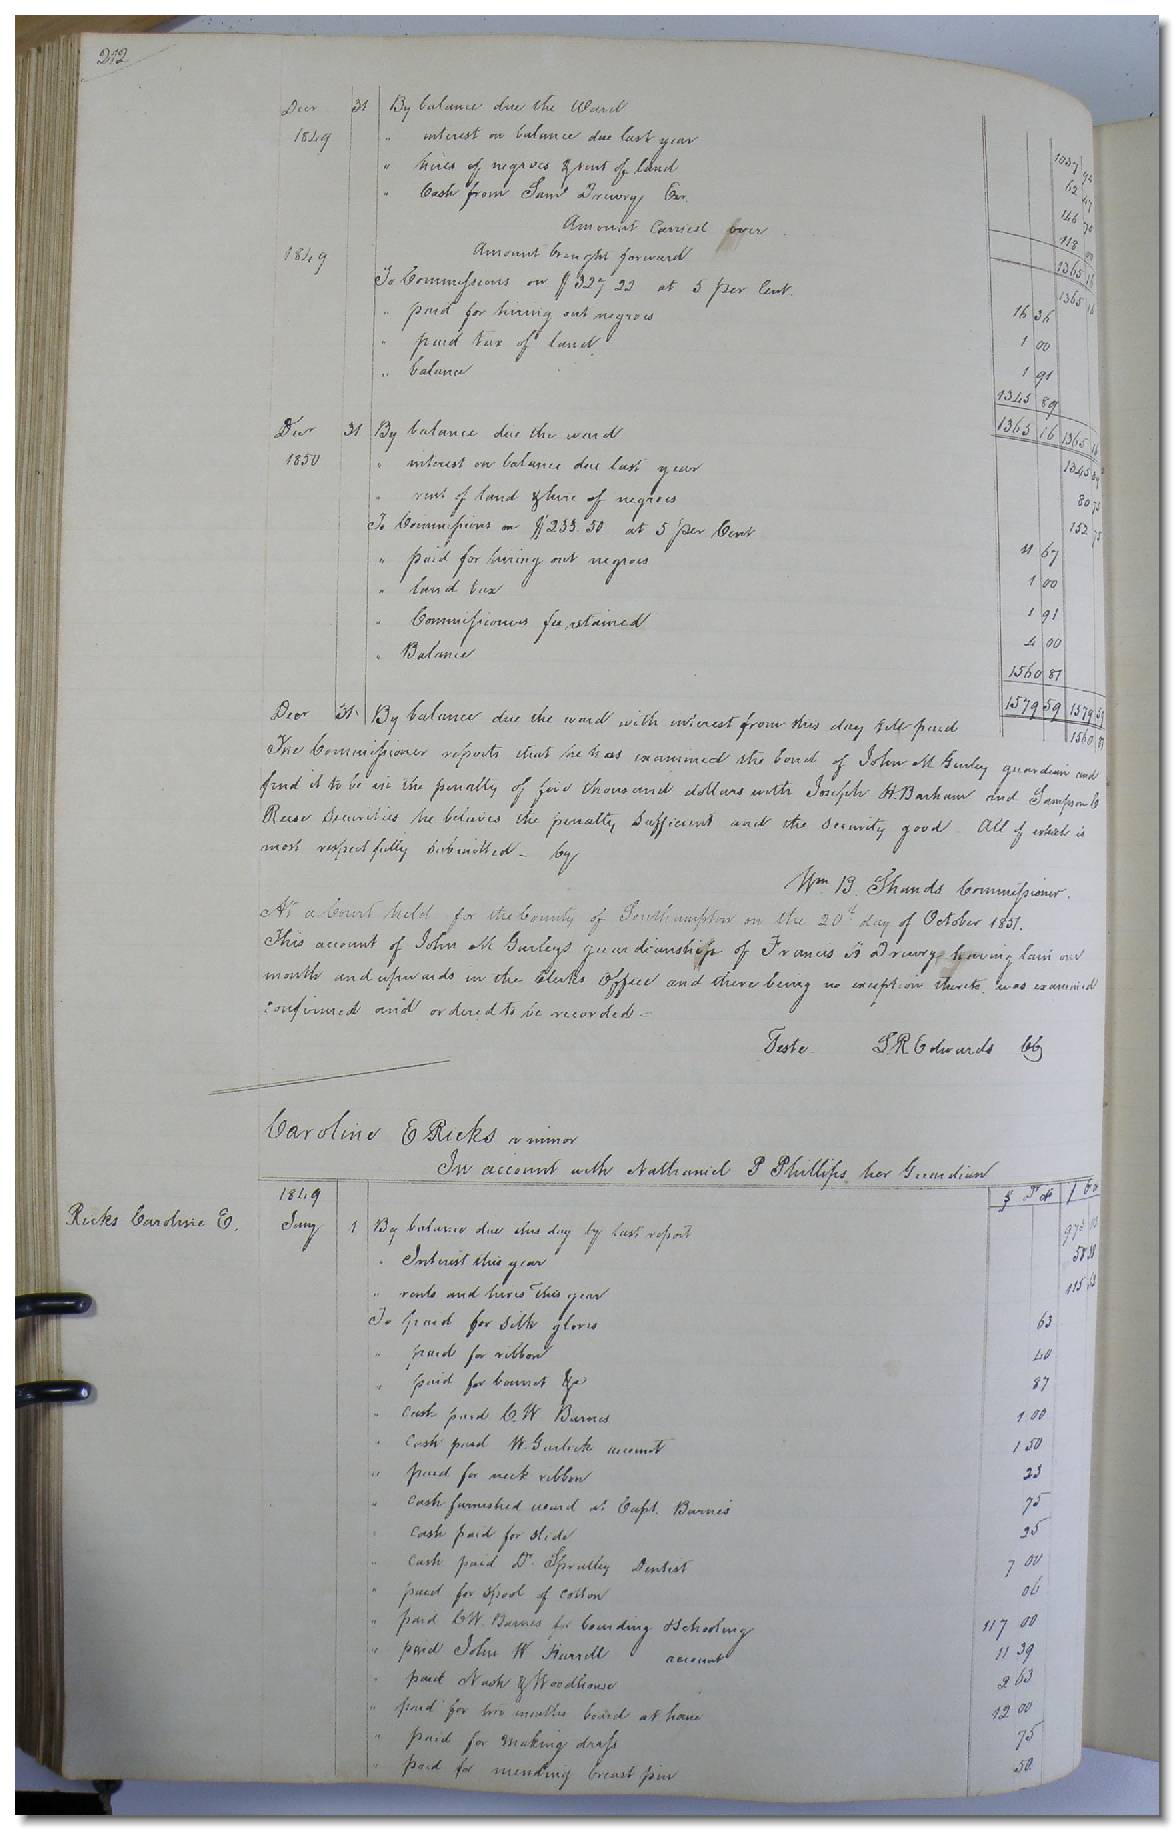 212
Decr 31 By balance due the Ward 1037 92
1849 " interest on balance due last year 62
" hires of negroes & rent of land 146
" Cash from Saml Drewry Exr. 118 00
Amount carried over 1365 16
1849 Amount brought forward 1365 16
To Commissions on $327 23 at 5 per Cent. 16 36
" paid for hiring out negroes 1 00
" paid tax of land 1 91
" balance 1345 89
1365 16 1365 16
Decr 31 By balance due the ward 1345 89
1850 " interest on balance due last year 80 75
" rent of land & hire of negroes 152 75
To Commissions on $233.50 at 5 per Cent 11 67
" paid for hiring out negroes 1 00
" land tax 1 91
" Commissioners fee retained 4 00
" Balance 1560 81
1579 59 1579 59
Decr 31 By balance due the ward with interest from this day till paid 1560 81
The Commissioner reports that he has examined the bond of John M Gurley guardian and
find it to be in the penalty of five thousand dollars with Joseph H. Barham and Sampson C
Reese securities he believes the penalty sufficient and the security good. All of which is
most respectfully submitted - by
Wm B. Shands Commissioner.
At a Court held for the County of Southampton on the 20th day of October 1851.
This account of John M Gurleys guardianship of Francis Drewry having lain one
month and upwards in the Clerks Office and there being no exception thereto, was examined
confirmed and ordered to be recorded -
Teste L R Edwards CC
Caroline E Ricks a minor
In account with Nathaniel P Phillips her Guardian
1849 $ Dr
Ricks Caroline E. Jany 1 By balance due this day by last report
" Interest this year 58 38
" rents and hires this year 115 63
To paid for silk gloves 63
" paid for ribbon 40
" paid for bonnet &c 87
" cash paid C. W Barnes 1 00
" cash paid W. Garlick account 1 50
" paid for neck ribbon 23
" cash furnished ward at Capt. Barnes 75
" cash paid for slide 25
" cash paid Dr. Spratley Dentist 7 00
" paid for spool of cotton 06
" paid C W. Barnes for boarding & schooling 117 00
" paid John W Harrell account 11 39
" paid Nash & Woodhouse 2 63
" paid for two months board at home 12 00
" paid for making dress 75
" paid for mending breast pin 50